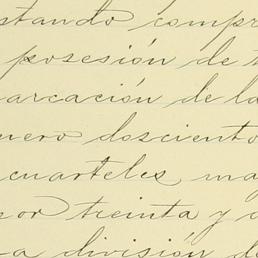 stando compr
posesión de
arcación de la
nero doscient
cuarteles ma
por treinta y
a división de